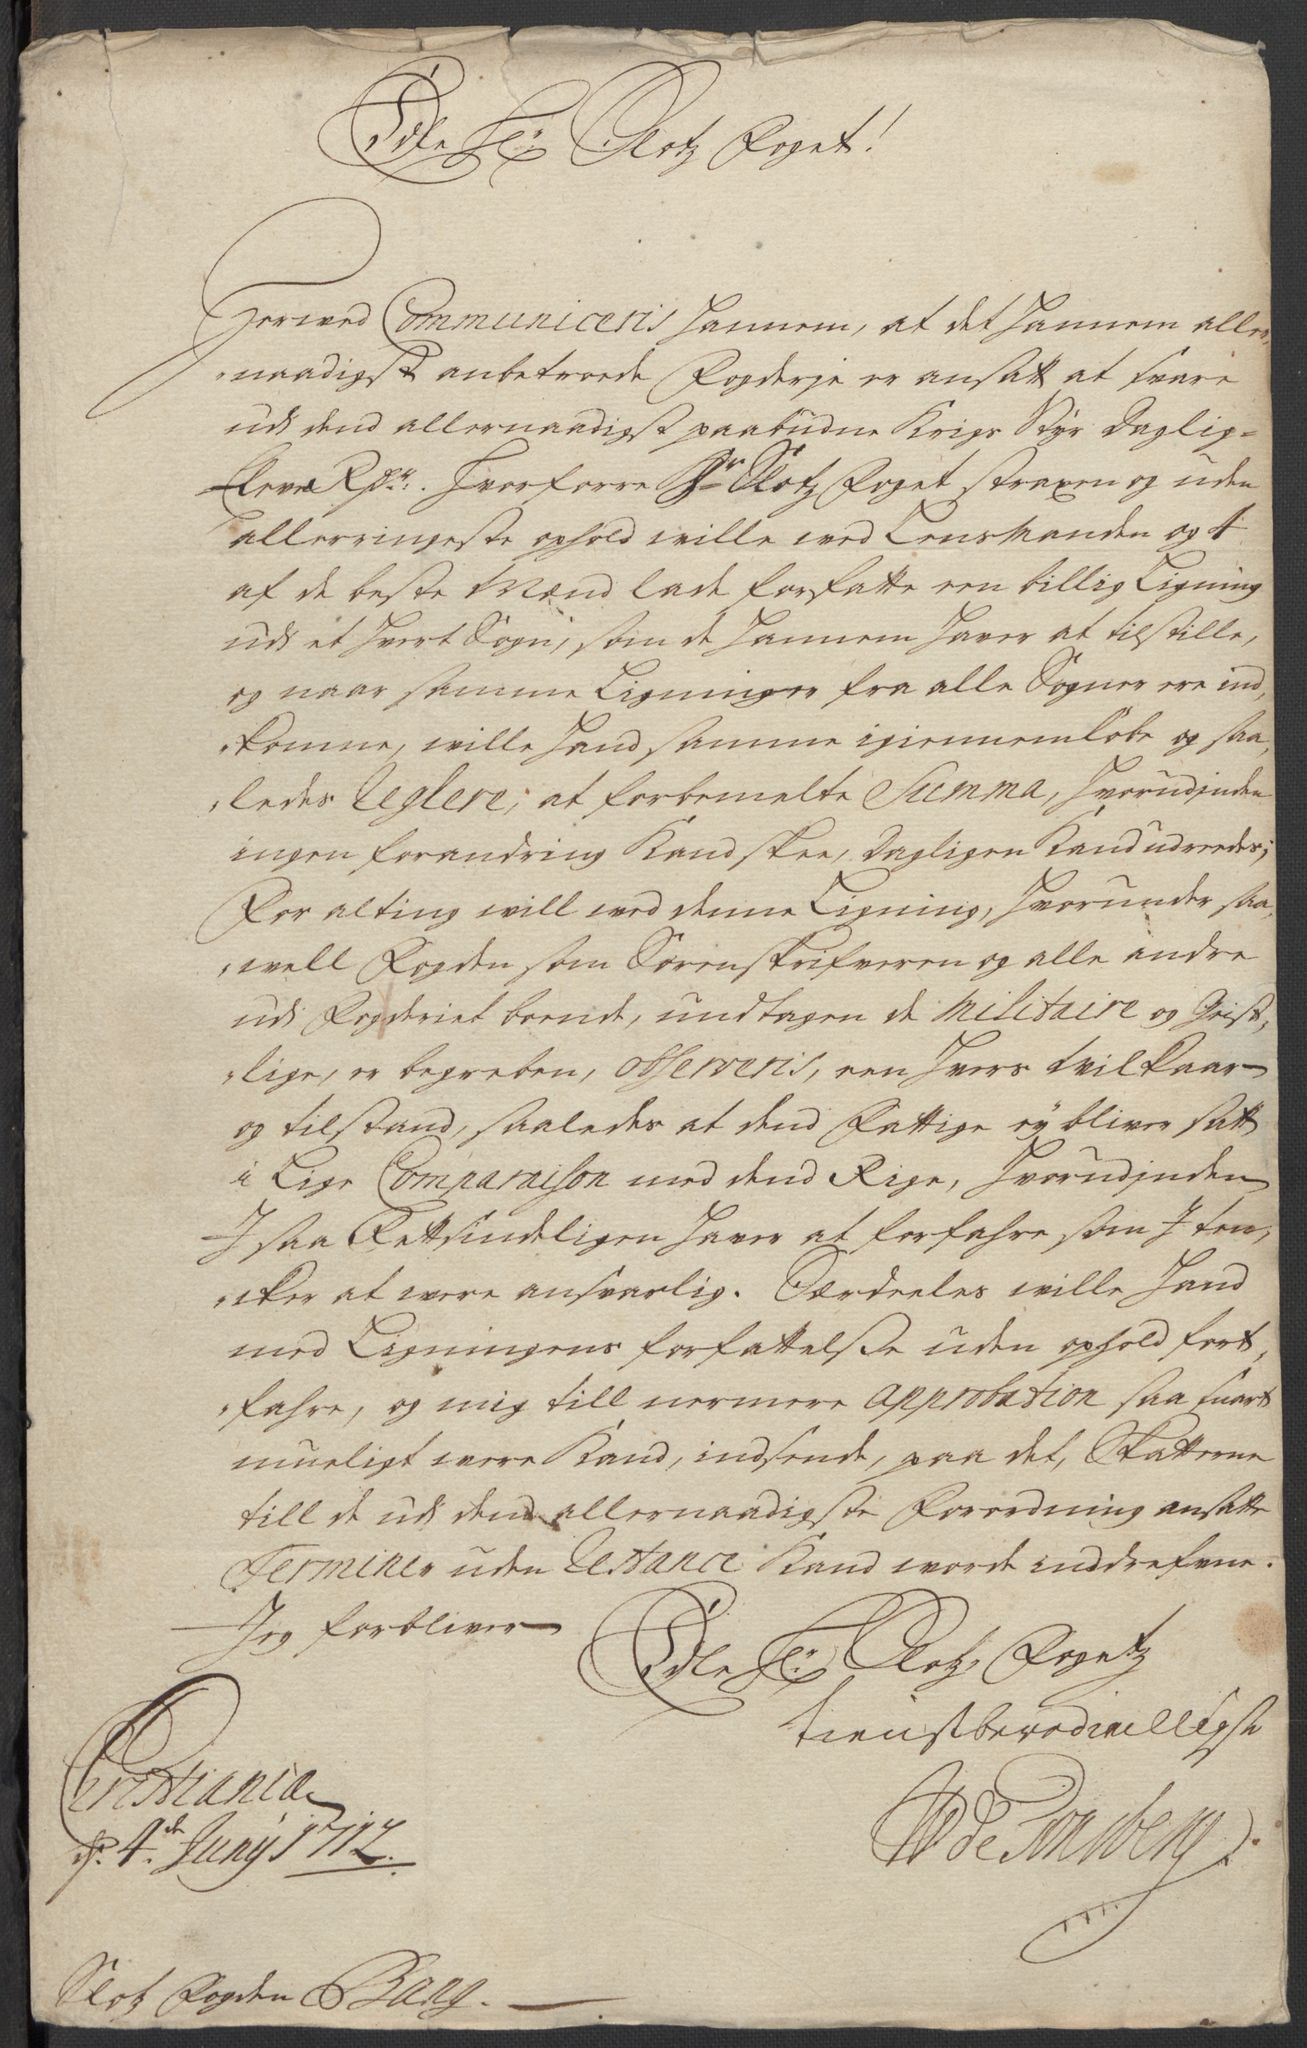 Edle Hr Slotz Foget!
Herved Communiceris hannem, at det hannem aller,
naadigst anbetroede Fogderje er ansatt at svare
udi dend allernaadigst paabudne Krigs Styr Daglig=
Eleve Rdr. Hvorforre Hr Slotz Foget straxen og uden
allerringeste ophold wille med Lensmanden og 4
af de beste Mænd lade forfatte een billig Ligning
udi et hvert Sogn, som de hannem haver at tilstille,
og naar samme Ligninger fra alle Sogner ere ind,
komme, wille hand samme igiennemlobe og saa,
ledes Reglere, at forbemelte Summa, hvorudjnden
ingen forandring Kand skee, dagligen Kand udreedes;
For alting will ved denne Ligning, hvorunder saa,
well Fogden som Sorenskrifveren og alle andre
udi Fogderiet boende, undtagen de Militaire og Geist,
lige, er begreben, observeris, een hvers Wilkaar
og tilstand, saaledes at dend Fattige ej bliver satt
i Lige Comparaison med dend Rige, hvorudjnden
I saa Rettsindeligen haver at forfahre som I ten,
cker at were ansvarlig. Særdeeles wille hand
med Ligningens forfattelsse uden ophold fort,
fahre, og mig till nermere Approbation saa snart
mueligt were Kand, indsende, paa det, Skatterne
till de udi dend allernaadigste Forordning ansatte
Terminer uden Restance Kand worde inddrefvne.
Jeg forbliver
Edle Hr Slotz Fogetz
tienstberedwilligste
W de Tonsberg
Christiania
d. 4de Junÿ 1712.
Slotz Fogden Bang.